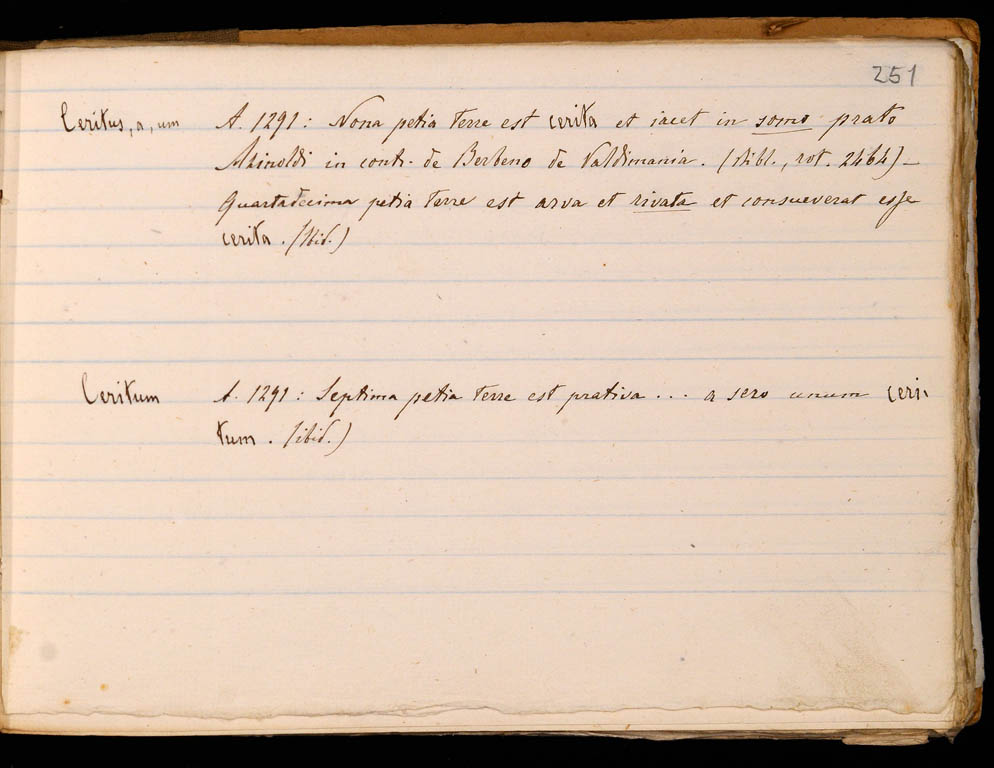 251
Ceritus, a, um A. 1291: Nona petia terre est cerita et iacet in somo prato
Arinoldi in contr. de Berbeno de Valdimania. (Bibl., rot. 2464) —
Quartadecima petia terre est arva et rivata et consueverat esse
cerita. (Ibid.)
Ceritum A. 1291: Septima petia terre est prativa ... a sero unum ceri-
tum. (ibid.)